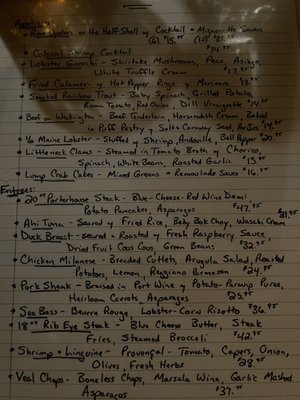 Appetizers:
- Raw Oysters on the Half Shell w/ Cocktail + Mignonette Sauces
(6) $15.95 (12) $31.95
- Colossal Shrimp Cocktail $14.95
- Lobster Gnocchi - Shiitake Mushrooms, Peas, Asiago,
White Truffle Cream $17.95
- Fried Calamari w/ Hot Pepper Rings + Marinara $13.95
- Smoked Rainbow Trout - Baby Spinach, Grilled Potato,
Roma Tomato, Red Onion, Dill Vinaigrette $14.95
- Beef on Weckington - Beef Tenderloin, Horseradish Cream, Baked
in Puff Pastry w/ Salt + Caraway Seed, Au Jus $14.95
- 1/2 Maine Lobster - Stuffed w/ Shrimp, Andouille, Bell Pepper $20.95
- Littleneck Clams - Steamed in Tomato Broth w/ Chorizo,
Spinach, White Beans, Roasted Garlic $13.95
- Lump Crab Cakes - Mixed Greens + Remoulade Sauce $16.95
Entrees:
- 20oz Porterhouse Steak - Blue-Cheese-Red Wine Demi
Potato Pancake, Asparagus $47.95
- Ahi Tuna - Seared w/ Fried Rice, Baby Bok Choy, Wasabi Cream $31.95
- Duck Breast - Seared + Roasted w/ Fresh Raspberry Sauce,
Dried Fruit Cous Cous, Green Beans $32.95
- Chicken Milanese - Breaded Cutlets, Arugula Salad, Roasted
Potatoes, Lemon, Reggiano Parmesan $24.95
- Pork Shank - Braised in Port Wine w/ Potato-Parsnip Puree,
Heirloom Carrots, Asparagus
- Sea Bass - Beurre Rouge, Lobster-Corn Risotto $36.95
- 18oz Rib Eye Steak - Blue Cheese Butter, Steak
Fries, Steamed Broccoli $42.95
- Shrimp + Linguine - Provençal - Tomato, Capers, Onion,
Olives, Fresh Herbs $28.95
- Veal Chops - Boneless Chops, Marsala Wine, Garlic Mashed
Asparagus $37.95